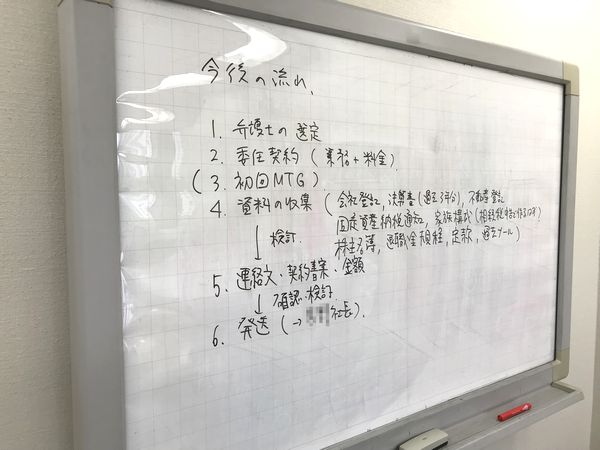 今後の流れ、
1. 弁護士の選定
2. 委任契約(業務+料金)
(3. 初回MTG)
4. 資料の収集(会社登記, 決算書(過去3年分), 不動産登記
固定資産納税通知, 家族構成(相続税
株主名簿, 退職金規程, 定款, 過去メール)
↓検討
5. 連絡文・契約書案・金額
↓確認・検討
6. 発送(→ 社長).